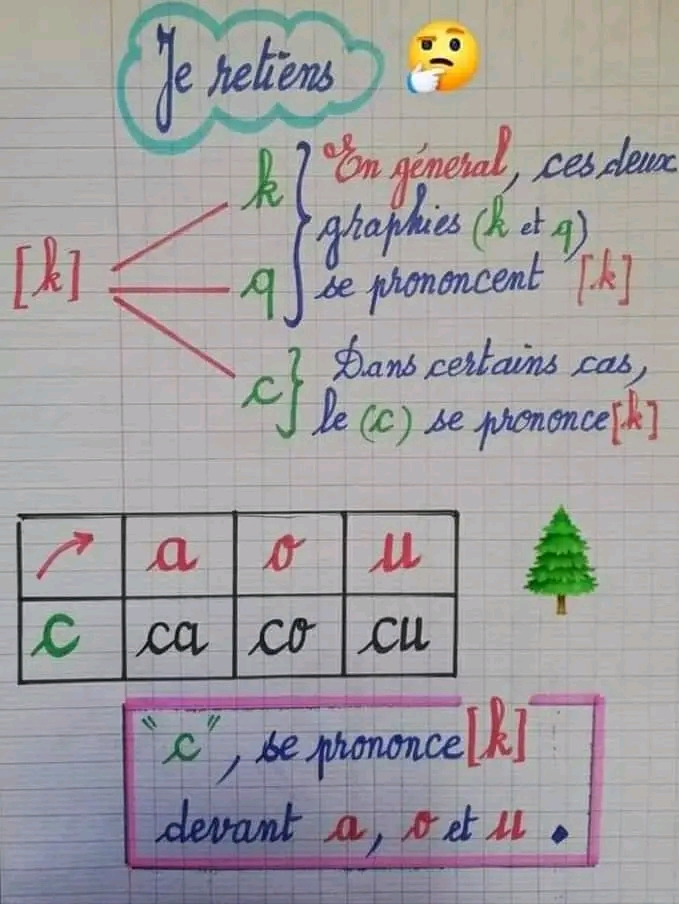 Je retiens
k
En géneral, ces deux
graphies (k et q)
[k]
q
se prononcent [k]
c
Dans certains cas,
le (c) se prononce [k]
a o u
c ca co cu
"c", se prononce [k]
devant a, o et u.